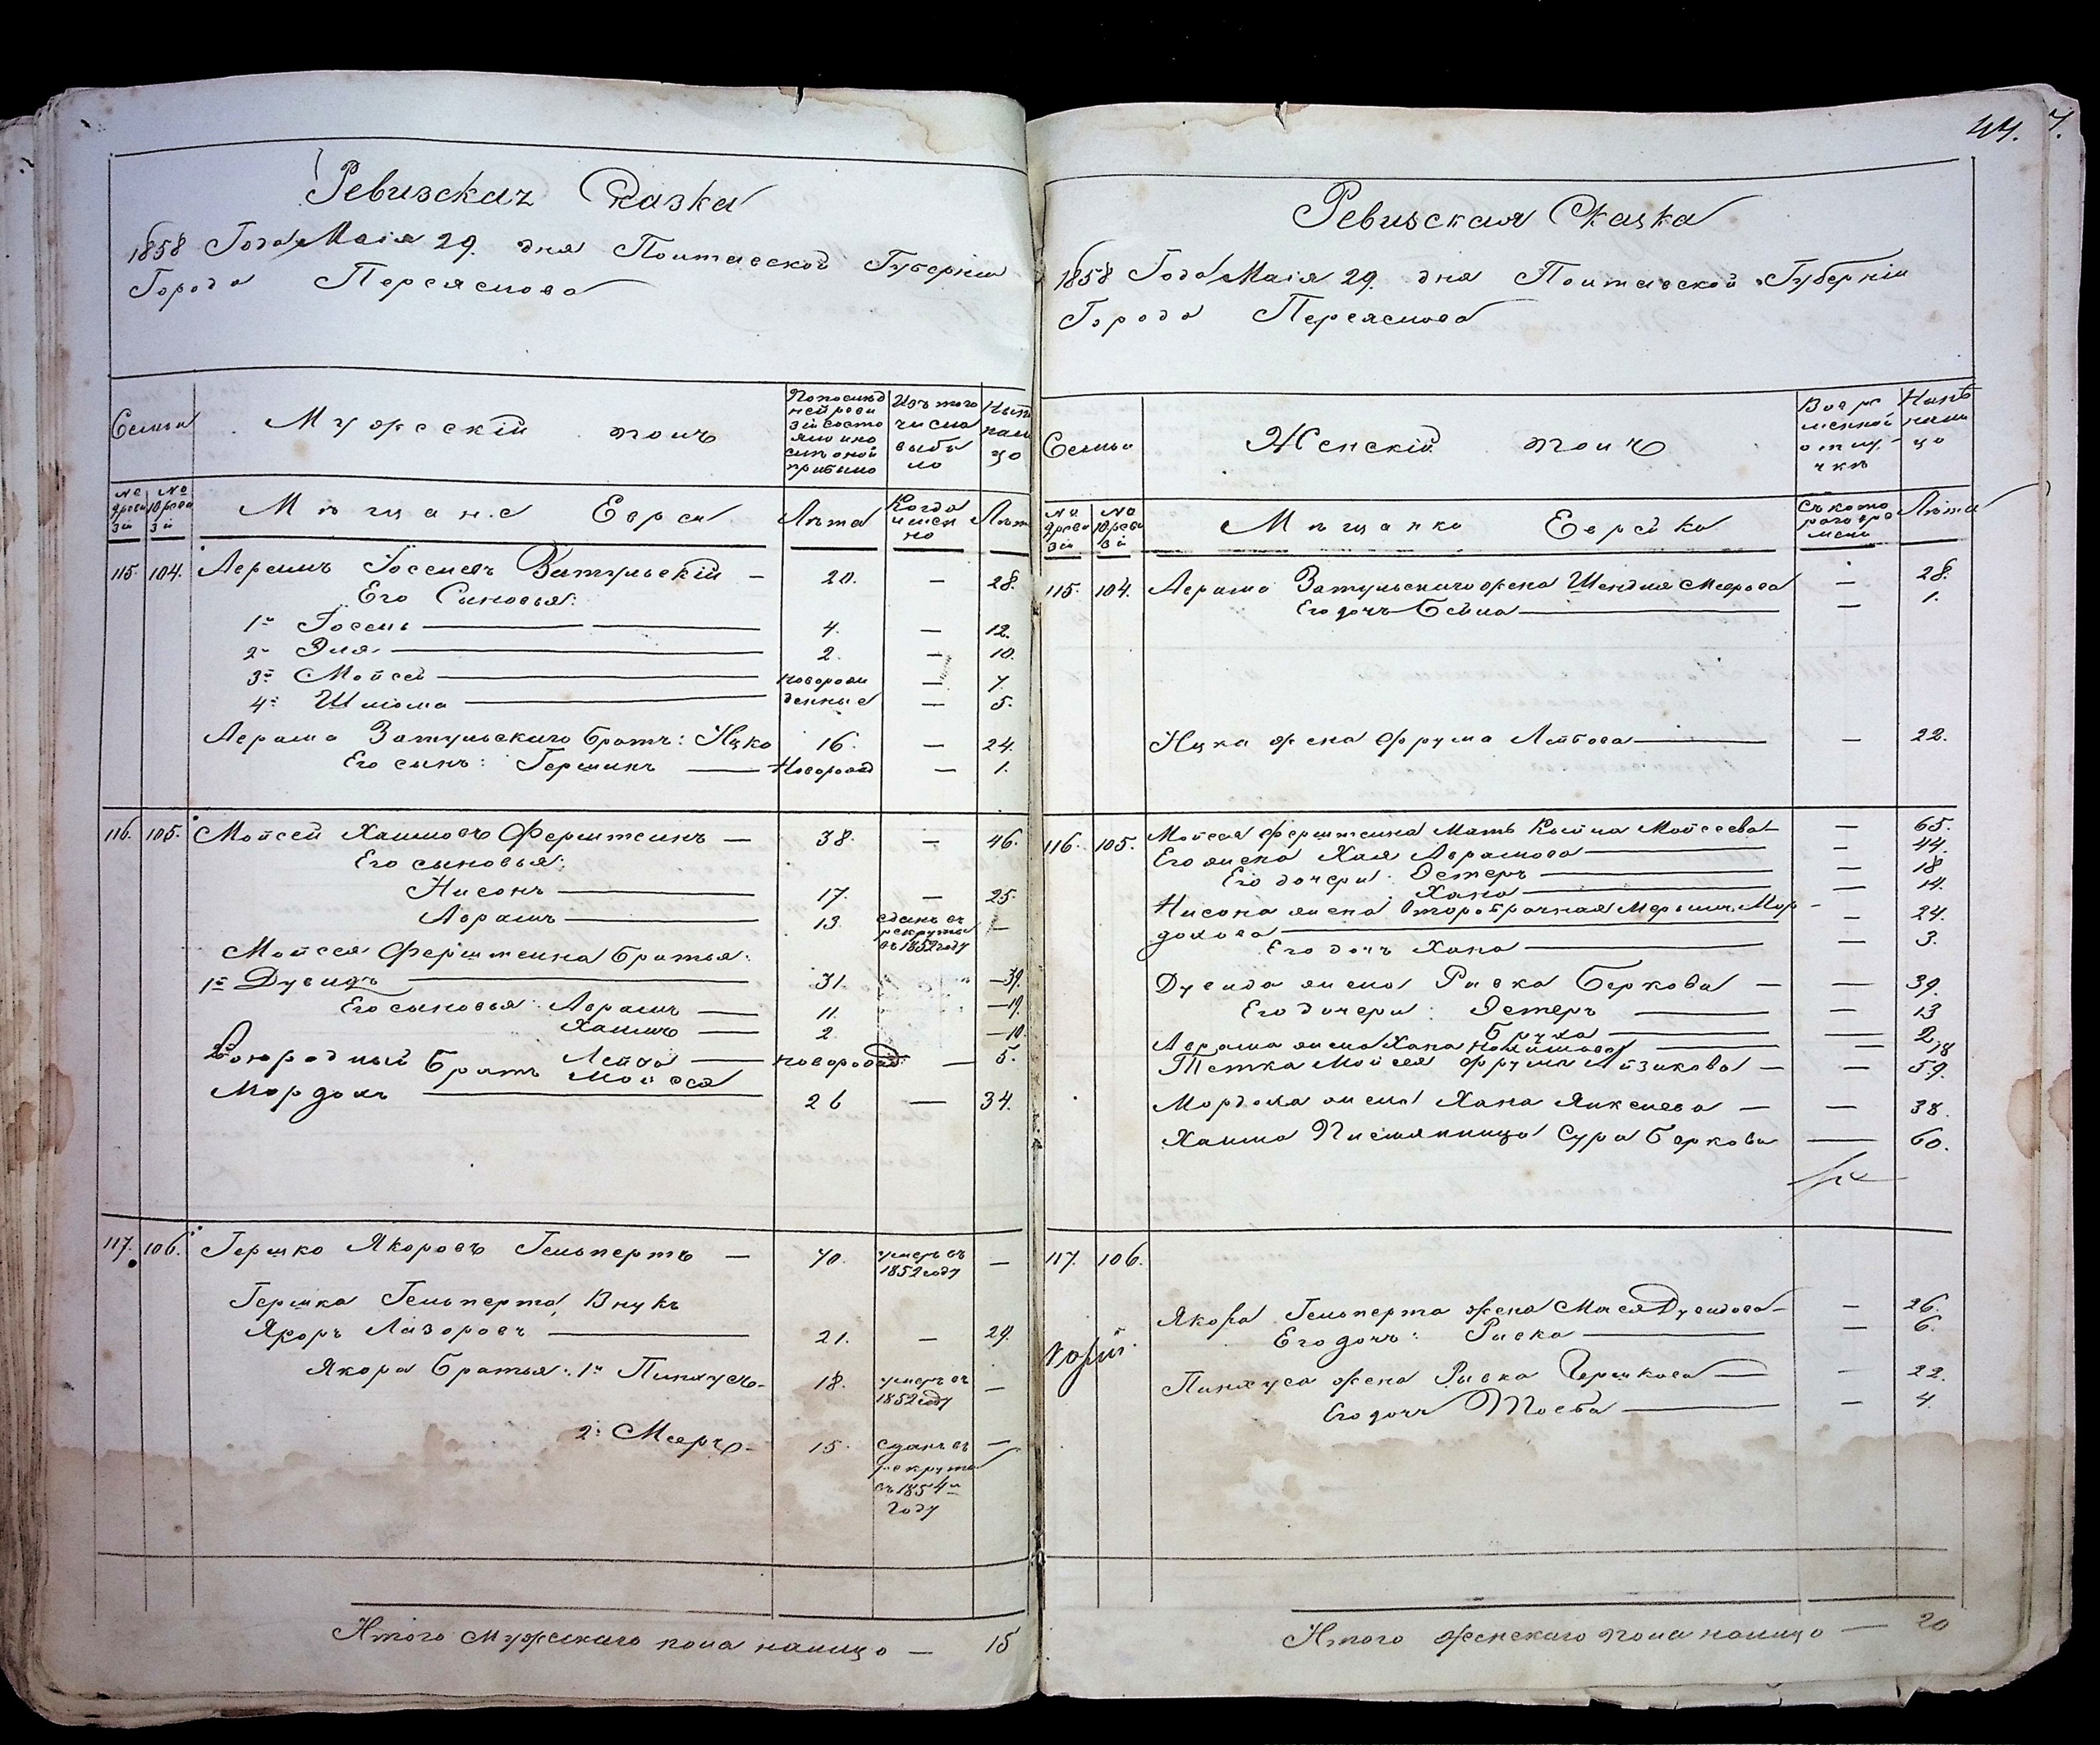 Ревизская Сказка
1858 Года Маія 29. дня Полтавской Губерніи
Города Переяслова
Семьи
Мужескій полъ
По послѣд
ней реви
зіи состо
яло и по
слѣ оной
прибыло
Изъ того
числа
выбы
ло
Нынѣ
нали
цо
№ 9 реви
зіи
№ 10 реви
зіи
Мѣщане Евреи
Лѣта
Когда
имен
но
Лѣта
115. 104. Аврамъ Іосеневъ Затульскій — 20. — 28.
Его Сыновья:
1й Іосень 4. — 12.
2й Эля 2. — 10.
3й Мойсей новорож — 7.
4й Шлома денные — 5.
Аврама Затульскаго братъ: Ицко 16. — 24.
Его сынъ: Гершинъ Новорожд — 1.
116. 105. Мойсей Хаимовъ Ферштеинъ — 38. — 46.
Его сыновья:
Нисонъ 17. — 25.
Аврамъ 13. сданъ въ рекруты въ 1852 году —
Мойсея Ферштеина братья:
1й Дувидъ 31. — 39.
Его сыновья: Аврамъ 11. — 19.
Хаимъ 2. — 10.
Лейба новорожд — 5.
Двоюродный братъ Мойсея
Мордохъ 26 — 34.
117. 106. Гершко Якоровъ Гельпертъ — 70. умеръ въ 1852 году —
Гершка Гельперта Внукъ
Якоръ Лазоровъ 21. — 29.
Якора братья: 1й Пинхусъ 18. умеръ въ 1852 году —
2й Мееръ 15. сданъ въ рекруты въ 1854м году —
Итого мужескаго пола налицо — 15
44.
7.
Ревизская Сказка
1858 Года Маія 29. дня Полтавской Губерніи
Города Переяслова
Семьи
Женскій полъ
Во вре
менной
отлу-
чкѣ
Нынѣ
нали
цо
№ 9 реви
зіи
№ 10 реви
зіи
Мѣщанки Еврейки
Съ кото
раго вре
мени
Лѣта
115. 104. Аврама Затульскаго жена Шендля Меерова — 28.
Его дочь Бейла — 1.
Ицка жена Фрума Лейбова — 22.
116. 105. Мойсея Ферштеина Мать Кейла Мойсеева — 65.
Его жена Хая Аврамова — 44.
Его дочери: Эстеръ — 18
Хана — 14.
Нисона жена второбрачная Меръя Мор-
дохова — 24.
Его дочь Хана — 3.
Дувида жена Ривка Беркова — 39.
Его дочери: Эстеръ — 13
Бруха — 2
Аврама жена Хана — 18
Тетка Мойсея Фрума Айзикова — 59.
Мордоха жена Хана Янкелева — 38.
Хаима Племянница Сура Беркова — 60.
117. 106.
Якора Гельперта жена Мася Дувидова — 26.
Его дочь: Ривка — 6.
Пинхуса жена Ривка Гершкова — 22.
Его дочь Тоеба — 4.
Итого женскаго пола налицо — 20